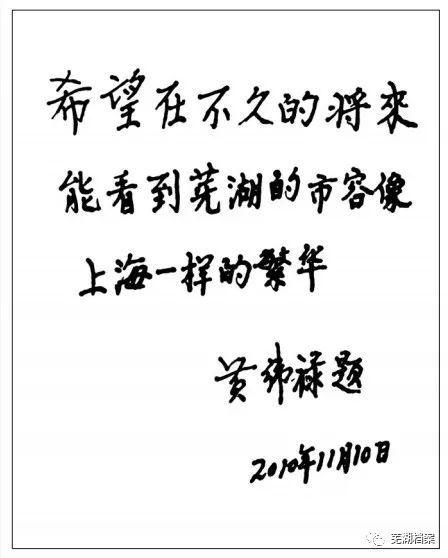 希望在不久的将来
能看到芜湖的市容像
上海一样的繁华
黄纬禄题
2010年11月10日
芜湖档案